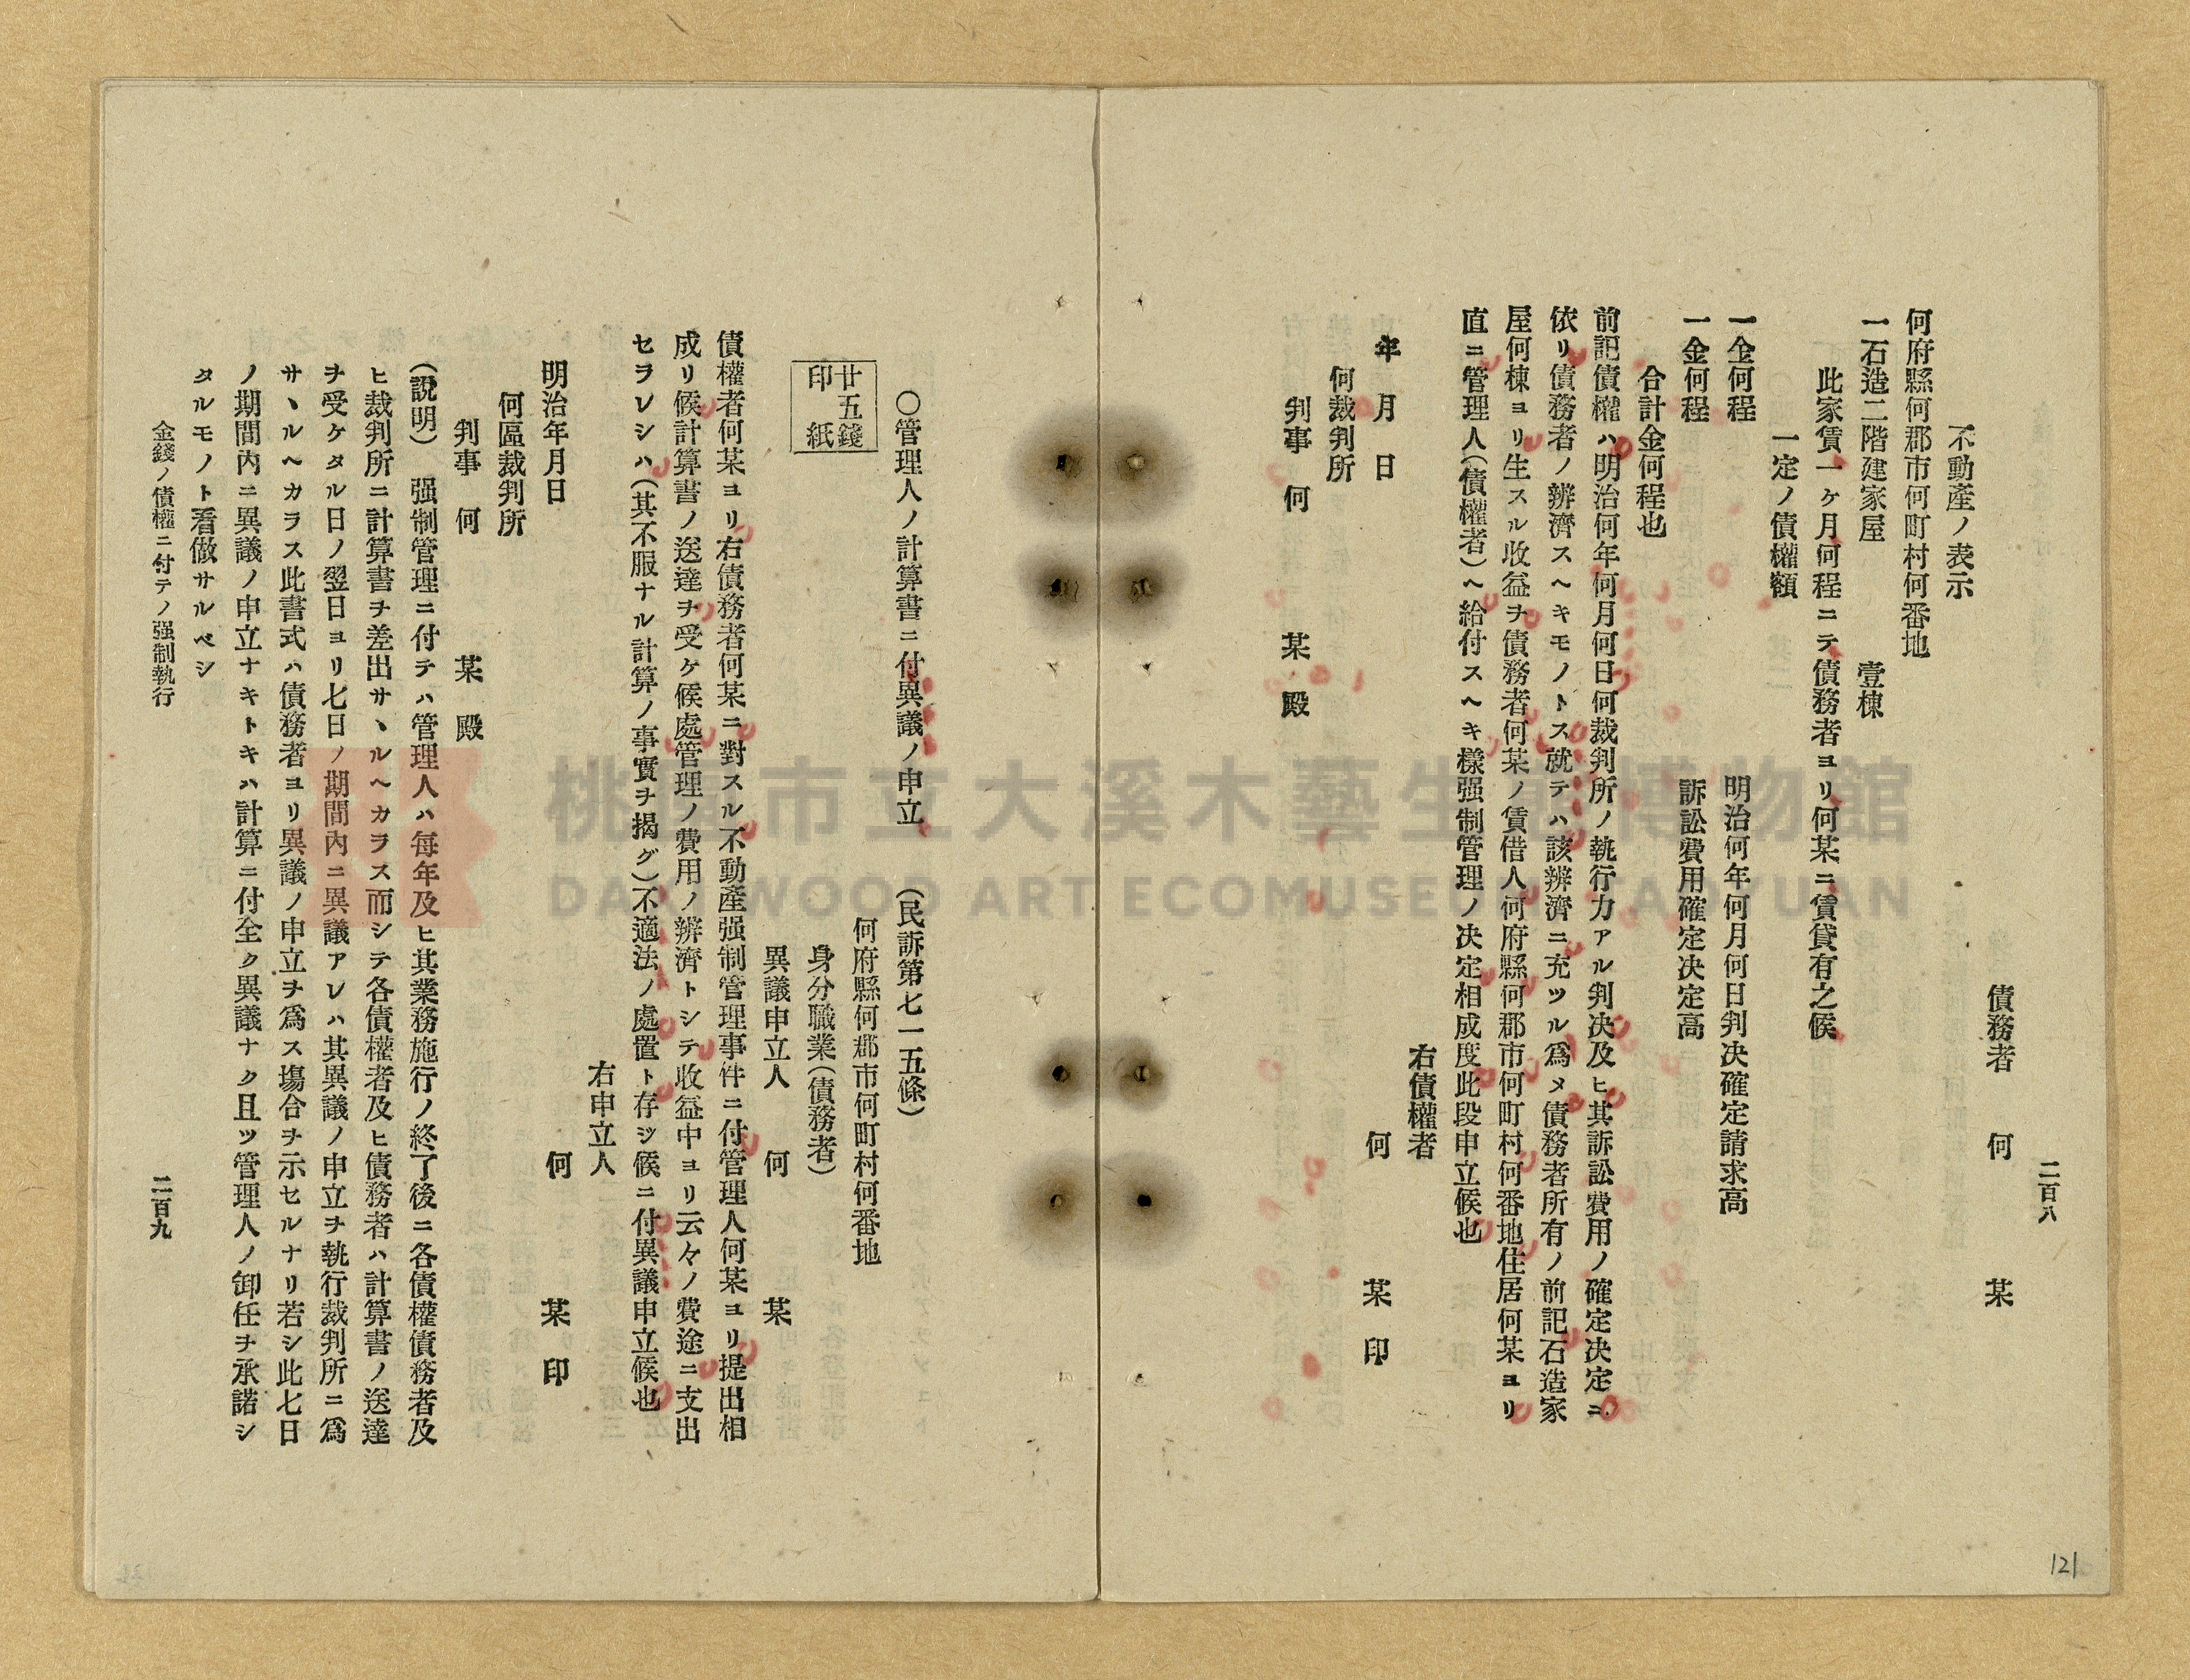 二百八
債務者 何 某
不動產ノ表示
何府縣何郡市何町村何番地
一石造二階建家屋 壹棟
此家賃一ヶ月何程ニテ債務者ヨリ何某ニ賃貸有之候
一定ノ債權額
一金何程 明治何年何月何日判决確定請求高
一金何程 訴訟費用確定决定高
合計金何程也
前記債權ハ明治何年何月何日何裁判所ノ執行力アル判决及ヒ其訴訟費用ノ確定决定ニ
依リ債務者ノ辨濟スヘキモノトス就テハ該辨濟ニ充ツル爲メ債務者所有ノ前記石造家
屋何棟ヨリ生スル收益ヲ債務者何某ノ賃借人何府縣何郡市何町村何番地住居何某ヨリ
直ニ管理人(債權者)ヘ給付スヘキ樣强制管理ノ决定相成度此段申立候也
右債權者
年 月 日 何 某 印
何裁判所
判事 何 某 殿
○管理人ノ計算書ニ付異議ノ申立 (民訴第七一五條)
何府縣何郡市何町村何番地
身分職業(債務者)
廿五錢
印紙
異議申立人 何 某
債權者何某ヨリ右債務者何某ニ對スル不動產强制管理事件ニ付管理人何某ヨリ提出相
成リ候計算書ノ送達ヲ受ケ候處管理ノ費用ノ辨濟トシテ收益中ヨリ云々ノ費途ニ支出
セラレシハ(其不服ナル計算ノ事實ヲ揭グ)不適法ノ處置ト存ジ候ニ付異議申立候也
右申立人
明治年月日 何 某 印
何區裁判所
判事 何 某 殿
(說明) 强制管理ニ付テハ管理人ハ每年及ヒ其業務施行ノ終了後ニ各債權債務者及
ヒ裁判所ニ計算書ヲ差出サヽルヘカラス而シテ各債權者及ヒ債務者ハ計算書ノ送達
ヲ受ケタル日ノ翌日ヨリ七日ノ期間內ニ異議アレハ其異議ノ申立ヲ執行裁判所ニ爲
サヽルヘカラス此書式ハ債務者ヨリ異議ノ申立ヲ爲ス塲合ヲ示セルナリ若シ此七日
ノ期間內ニ異議ノ申立ナキトキハ計算ニ付全ク異議ナク且ツ管理人ノ卸任ヲ承諾シ
タルモノト看做サルベシ
金錢ノ債權ニ付テノ强制執行 二百九
121
桃園市立大溪木藝生態博物館
DAXI WOOD ART ECOMUSEUM, TAOYUAN